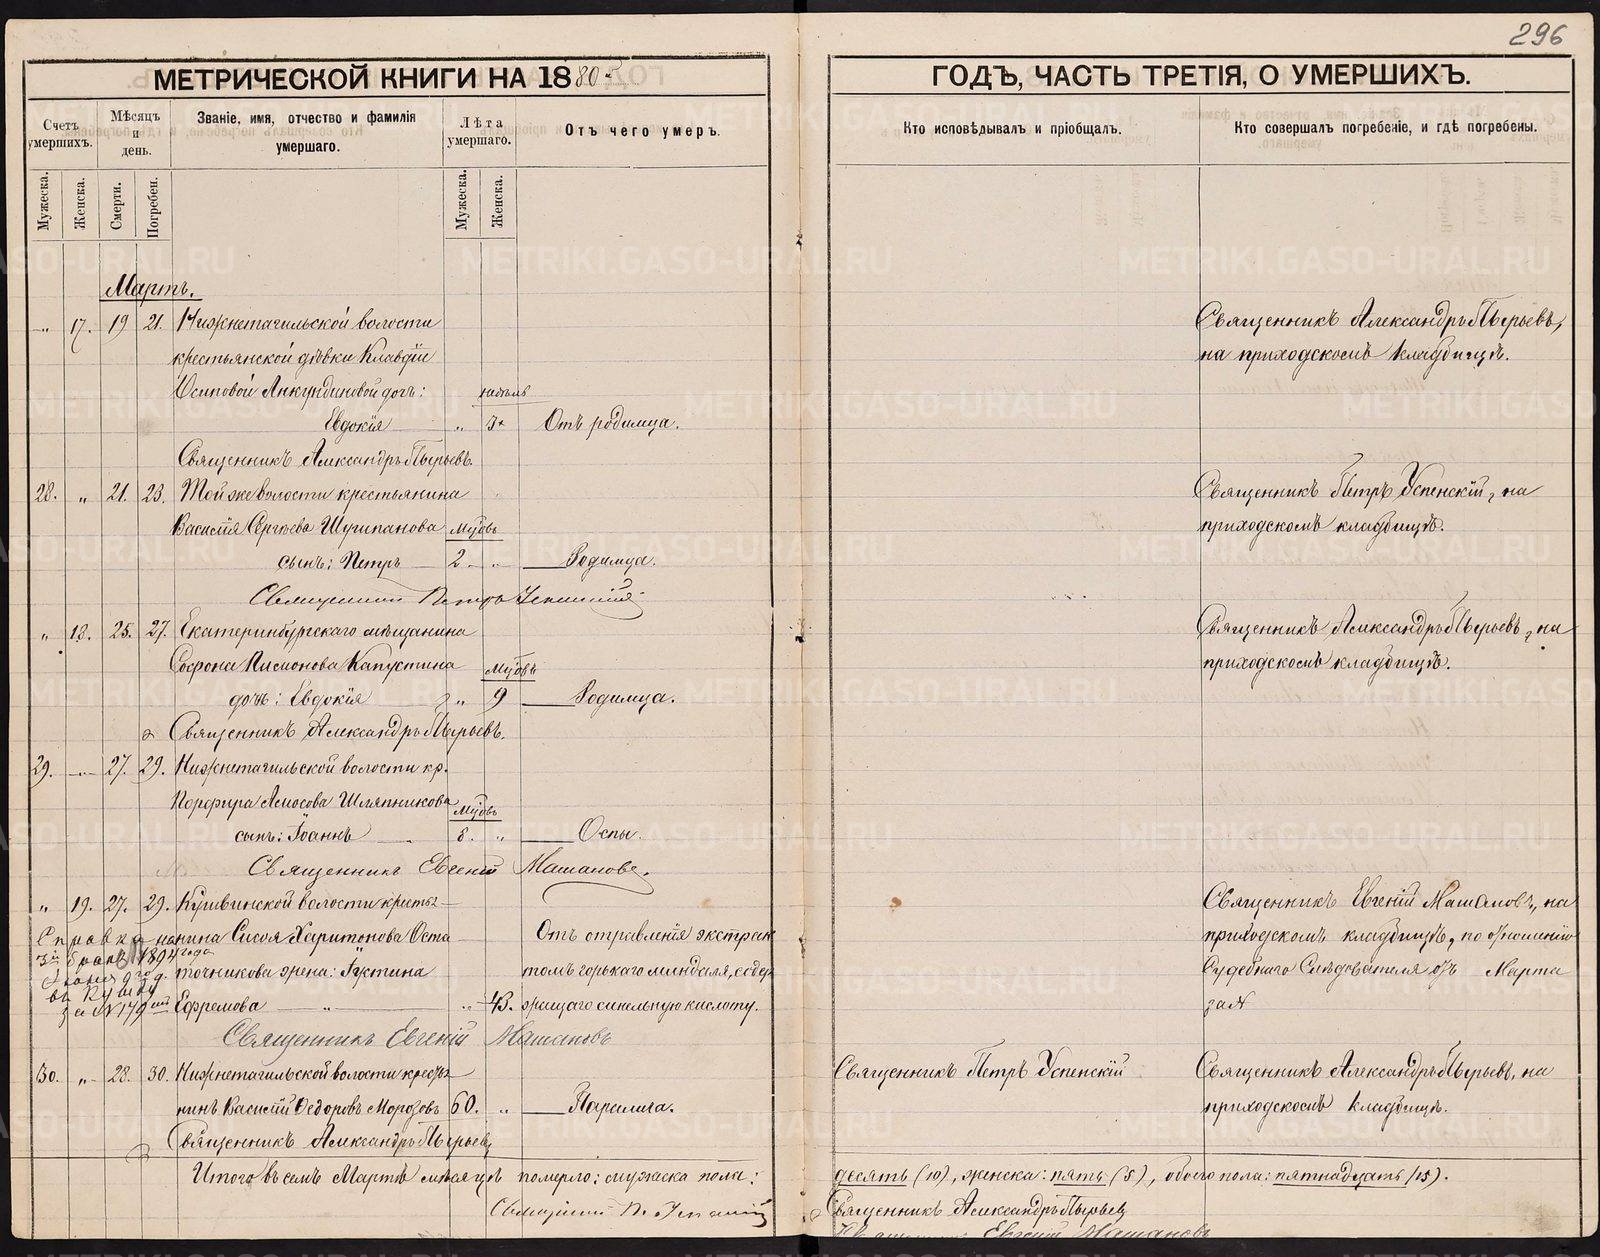 296
МЕТРИЧЕСКОЙ КНИГИ НА 1880
ГОДЪ, ЧАСТЬ ТРЕТІЯ, О УМЕРШИХЪ.
Счетъ умершихъ.
Мѣсяцъ и день.
Званіе, имя, отчество и фамилія умершаго.
Лѣта умершаго.
Отъ чего умеръ.
Кто исповѣдывалъ и пріобщалъ.
Кто совершалъ погребеніе, и гдѣ погребены.
Мужеска.
Женска.
Смерти.
Погребен.
Мужеска.
Женска.
Мартъ.
„ 17. 19 21. Нижнетагильской волости
крестьянской дѣвки Клавдіи
Осиповой Анкундиновой дочь:
Евдокія „ Отъ родимца.
Священникъ Александръ Пырьевъ.
Священникъ Александръ Пырьевъ,
на приходскомъ кладбищѣ.
28. „ 21. 23. Той же волости крестьянина
Василія Сергѣева
сынъ: Петръ 2 „ Родимца.
Священникъ Петръ Успенскій
Священникъ Петръ Успенскій, на
приходскомъ кладбищѣ.
„ 18. 25. 27. Екатеринбургскаго мѣщанина
Капустина
дочь: Евдокія „ 9 Родимца.
Священникъ Александръ Пырьевъ.
Священникъ Александръ Пырьевъ, на
приходскомъ кладбищѣ.
29. „ 27. 29. Нижнетагильской волости кр.
Порфира Амосова Шляпникова
сынъ: Іоаннъ 8. „ Оспы.
Священникъ Евгеній Машановъ.
„ 19. 27. 29. Кушвинской волости кресть
янина Сысоя Харитонова Оста
точникова жена: Іустина
Ефремова „ „ 43.
Отъ отравленія экстрак
томъ горькаго миндаля, содер
жащаго синельную кислоту.
Справка
1894 года
за №179
Священникъ Евгеній Машановъ
Священникъ Евгеній Машановъ, на
приходскомъ кладбищѣ, по отношенію
Судебнаго Слѣдователя отъ Марта
за №
30. „ 28. 30. Нижнетагильской волости кресть
нинъ Василій Ѳедоровъ Морозовъ 60. „ Паралича.
Священникъ Александръ Пырьевъ
Священникъ Петръ Успенскій
Священникъ Александръ Пырьевъ, на
приходскомъ кладбищѣ.
Итого въ семъ Мартѣ мѣсяцѣ померло: мужеска пола:
десять (10), женска: пять (5), обоего пола: пятнадцать (15).
Священникъ П. Успенскій
Священникъ Александръ Пырьевъ
Священникъ Евгеній Машановъ
METRIKI.GASO-URAL.RU